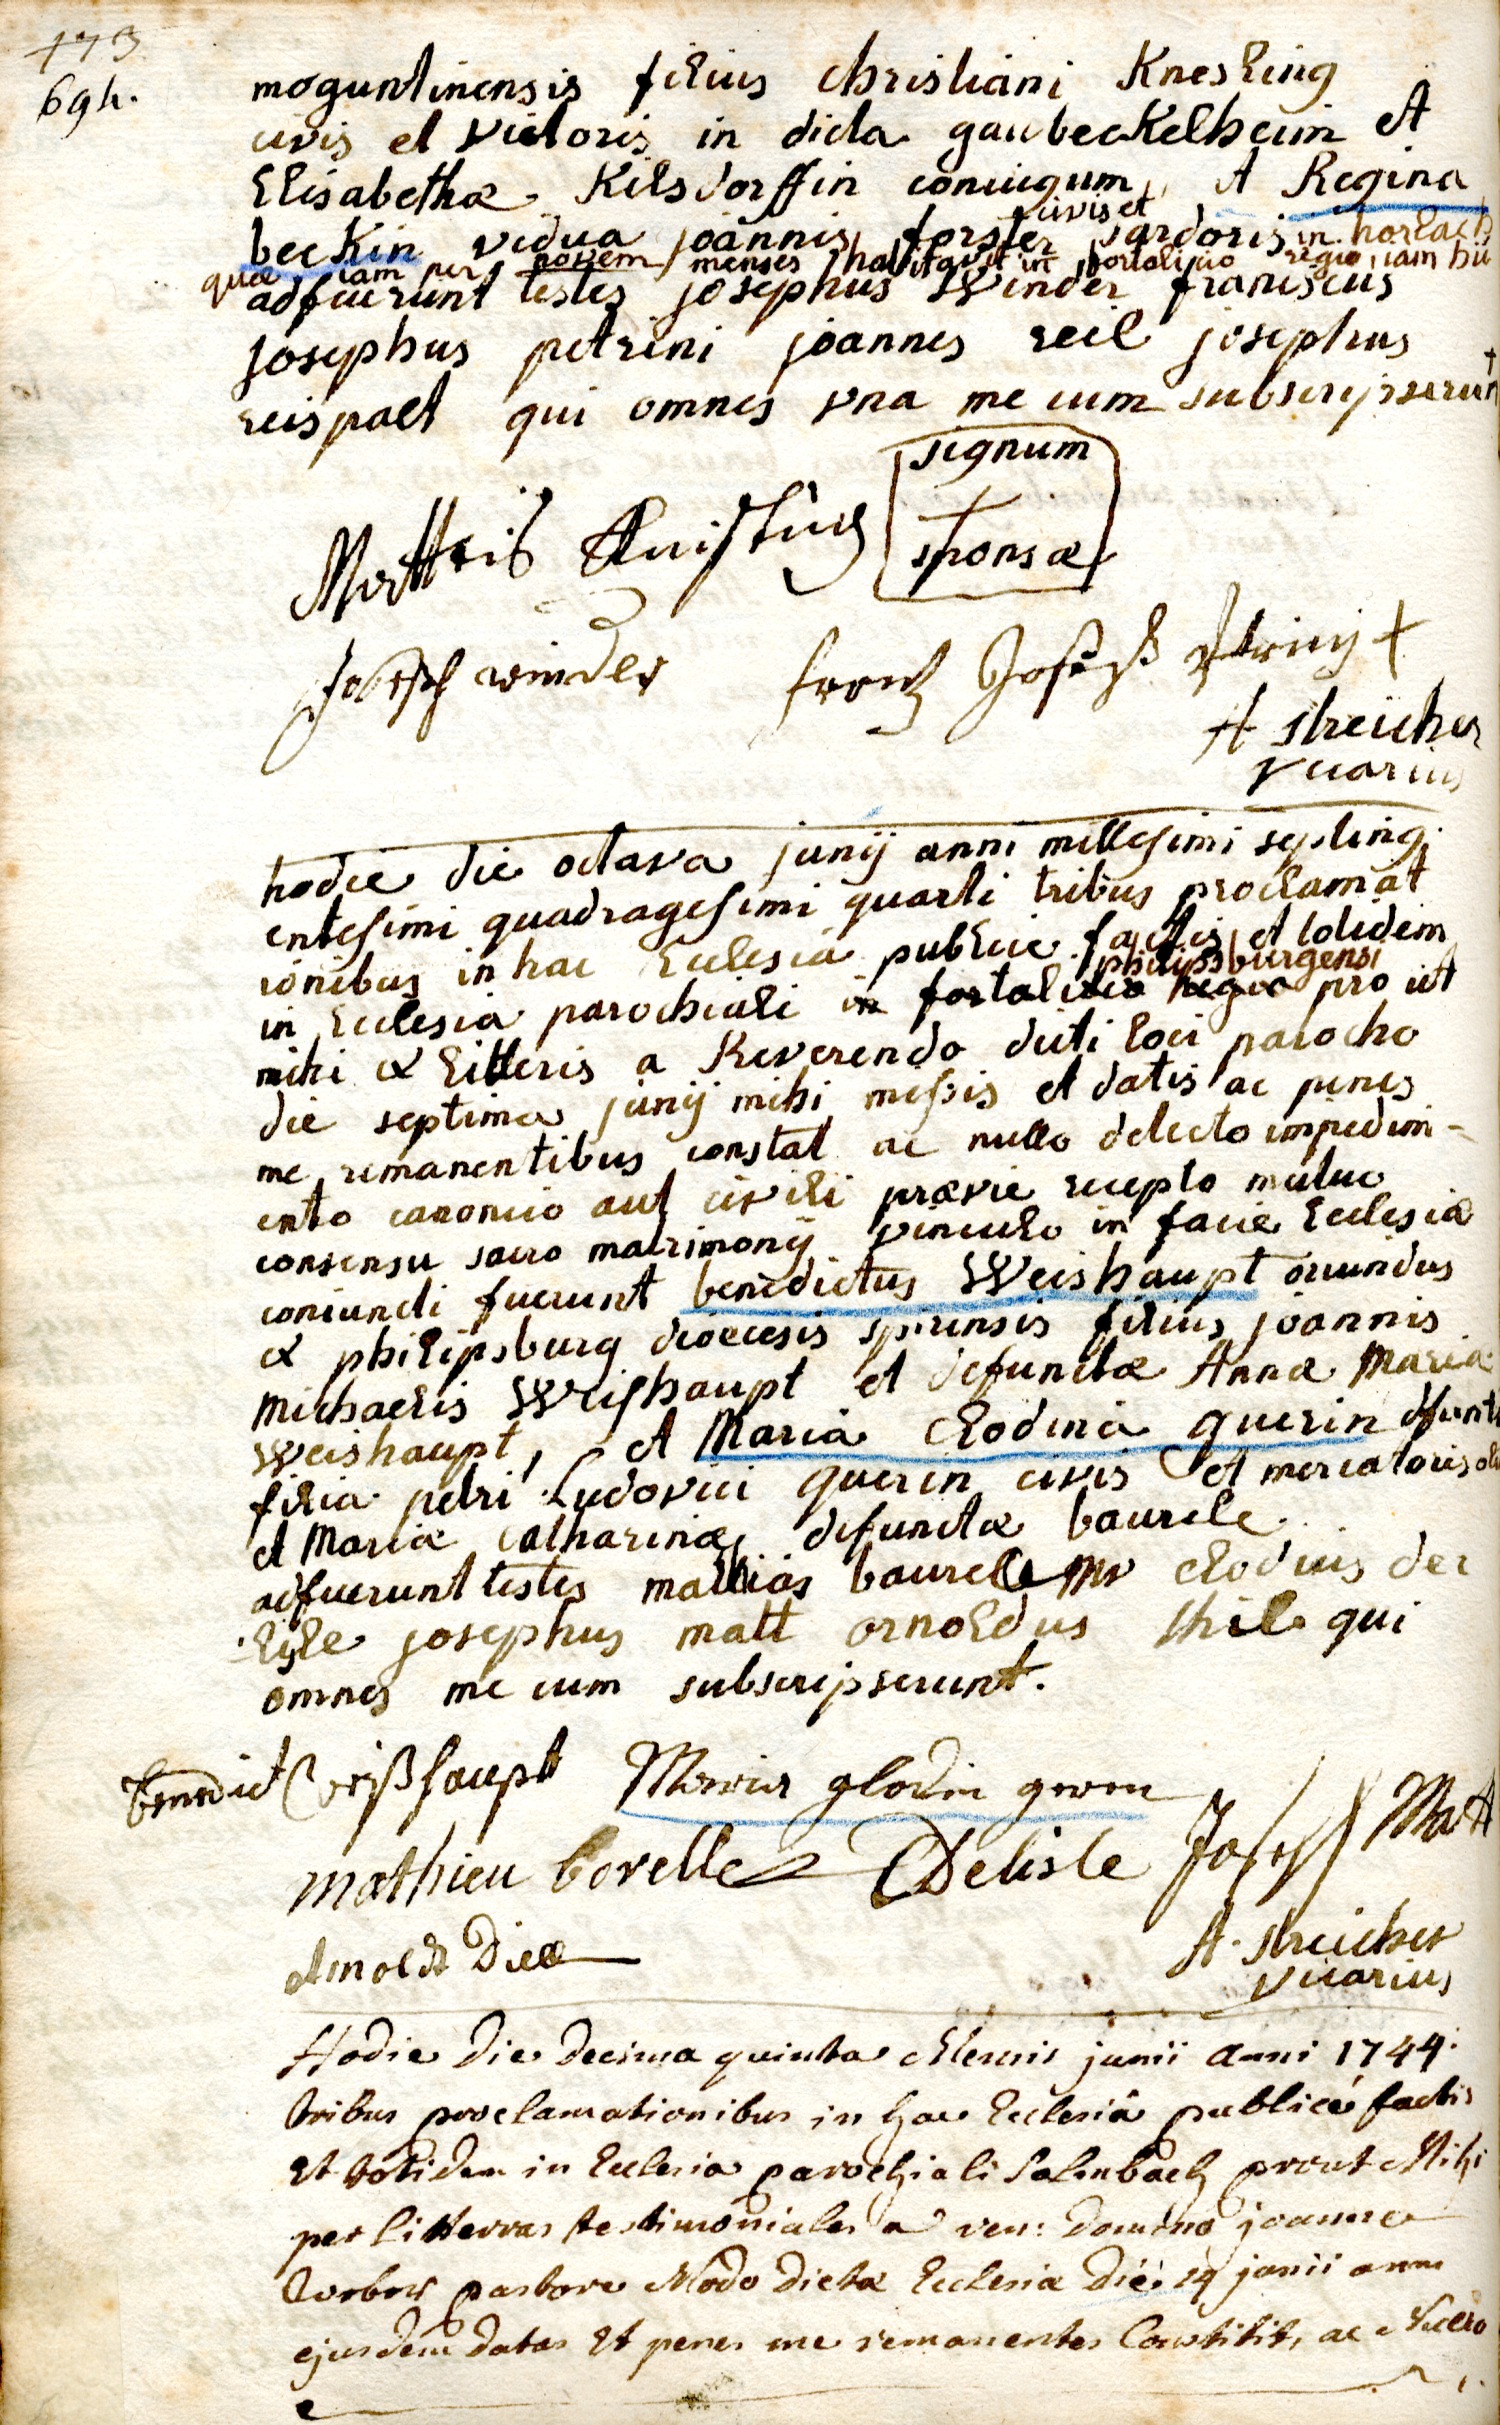 173
69h.
moguntinensis filius christiani Knesling
civis et vietoris in dicta gaubeckelheim et
Elisabethæ Kilsdorffin coniugum, et Regina
civis et
beckin vidua joannis forster sardoris in horbach
quæ iam per novem menses habitavit in fortalitio regio, iam hic
adfuerunt testes josephus Winder franciscus
josephus petrini joannes reil josephus
reispact qui omnes vna me cum subscripserunt
signum
sponsæ
Joseph winder
frantz Joseph
A streicher
vicarius
hodie die octava junij anni millesimi septing
entesimi quadragesimi quarti tribus proclamat
ionibus in hac Ecclesiâ publicè factis et totidem
philipsburgensi
in Ecclesia parochiali in fortalitio regio pro ut
mihi ex litteris a Reverendo dicti loci parocho
die septima junij mihi missis et datis ac penes
me remanentibus constat ac nullo detecto impedim-
ento canonico aut civili prævie recepto mutuo
consensu sacro matrimonij vinculo in facie Ecclesiæ
coniuncti fuerunt benedictus Weishaupt oriundus
ex philipsburg dioecesis spirensis filius joannis
Michaelis Weishaupt et defunctæ Annæ Maria
Weishaupt, et Maria clodina guerin
filia petri Ludovici guerin civis et mercatoris
et Mariæ Catharinæ defunctæ baurele
adfuerunt testes mathias baurele clodius de
lisle josephus matt arnoldus thil qui
omnes me cum subscripserunt.
benedict Weißhaupt Maria glodin
mathieu borelle CDelisle Joseph Matt
Arnoldt
A. streicher
vicarius
Hodie die decima quinta Mensis junii anni 1744.
tribus proclamationibus in hac Ecclesiâ publicè factis
et totidem in Ecclesia parochiali Salmbach prout Mihi
per litteras testimoniales a ven: domino joanne
pastore Modo dictæ Ecclesiæ die 14 junii anni
ejusdem datas et penes me remanentes Constitit, ac